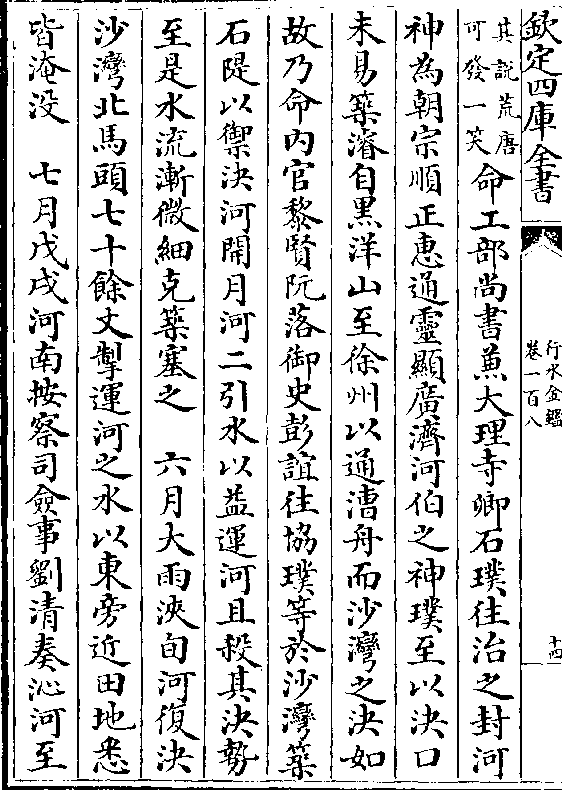 欽定四庫全書
行水金鑑
卷一百八
十四
其説荒唐
可發一笑
命工部尚書兼大理寺卿石璞往治之封河
神為朝宗順正惠通靈顯廣濟河伯之神璞至以決口
未易築濬自黒洋山至徐州以通漕舟而沙灣之決如
故乃命内官黎賢阮落御史彭誼往協璞等於沙灣築
石隄以禦決河開月河二引水以益運河且殺其決勢
至是水流漸微細克築塞之　六月大雨浹旬河復決
沙灣北馬頭七十餘丈掣運河之水以東旁近田地悉
皆淹没　七月戊戌河南按察司僉事劉清奏沁河至